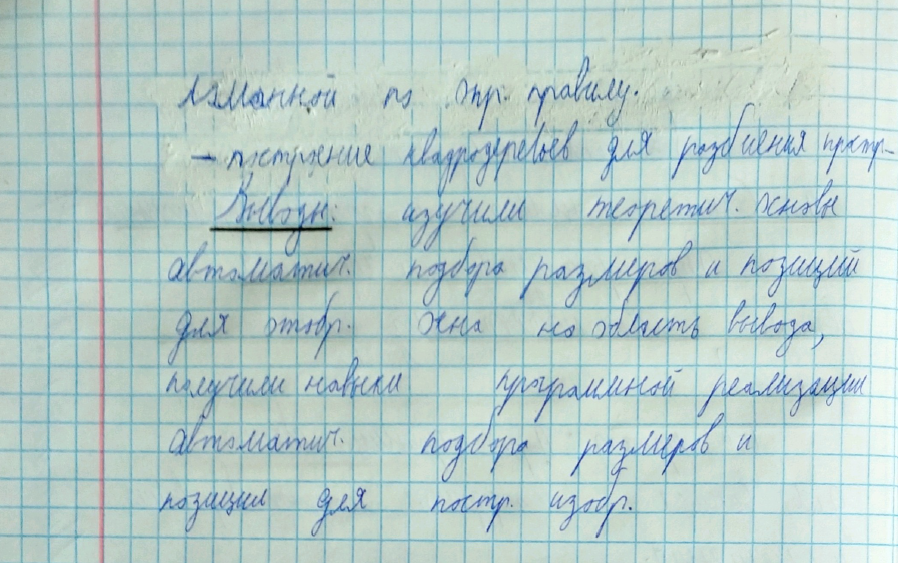 ломанной по опр. правилу.
— построение квадродеревьев для разбиения простр-
Выводы: изучили теоретич. основы
автоматич. подбора размеров и позиций
для отобр. окна на область вывода,
получили навыки программной реализации
автоматич. подбора размеров и
позиции для постр. изобр.